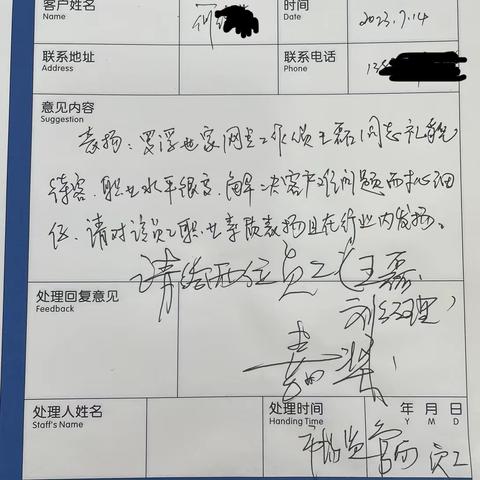 客户姓名 时间 2023.7.14
Name Date
联系地址 联系电话
Address Phone
意见内容
Suggestion
表扬:罗浮世家网点工作人员王磊同志礼貌
待客、职业水平很高,解决客户难问题而耐心细
任、请对该员工职业素质表扬且在行业内发扬。
请给两位员工(王磊、
刘经理)
处理回复意见
Feedback
表奖!
处理人姓名 处理时间 年 月 日
Staff's Name Handing Time Y M D